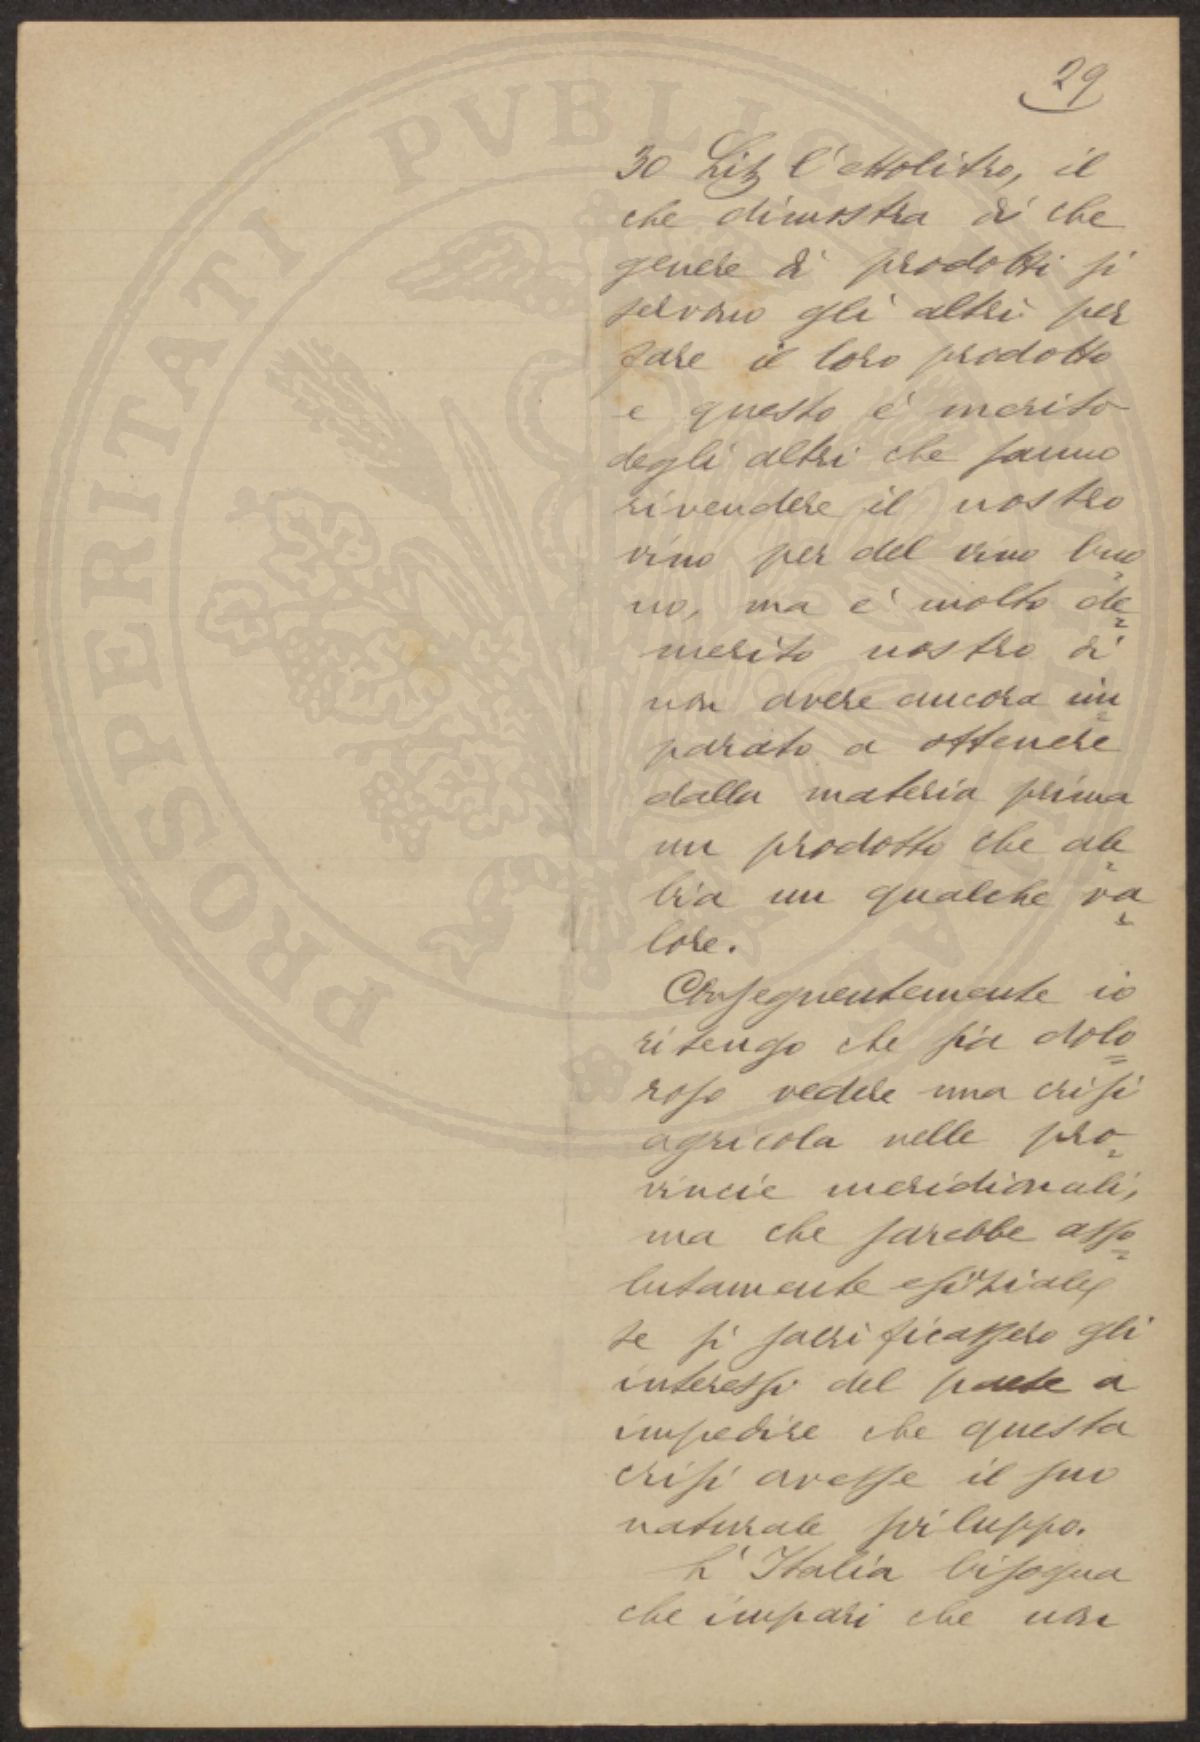 29
30 Lit l'ettolitro, il
che dimostra di che
genere di prodotti si
servono gli altri per
fare il loro prodotto
e questo è merito
degli altri che fanno
rivendere il nostro
vino per del vino buo
no, ma è molto de
merito nostro di
non avere ancora im
parato a ottenere
dalla materia prima
un prodotto che ab
bia un qualche va
lore.
Conseguentemente io
ritengo che sia dolo
roso vedere una crisi
agricola nelle pro
vincie meridionali,
ma che sarebbe asso
lutamente esiziale
se si sacrificassero gli
interessi del paese a
impedire che questa
crisi avesse il suo
naturale sviluppo.
L'Italia bisogna
che impari che non
PROSPERITATI PVBLICAE